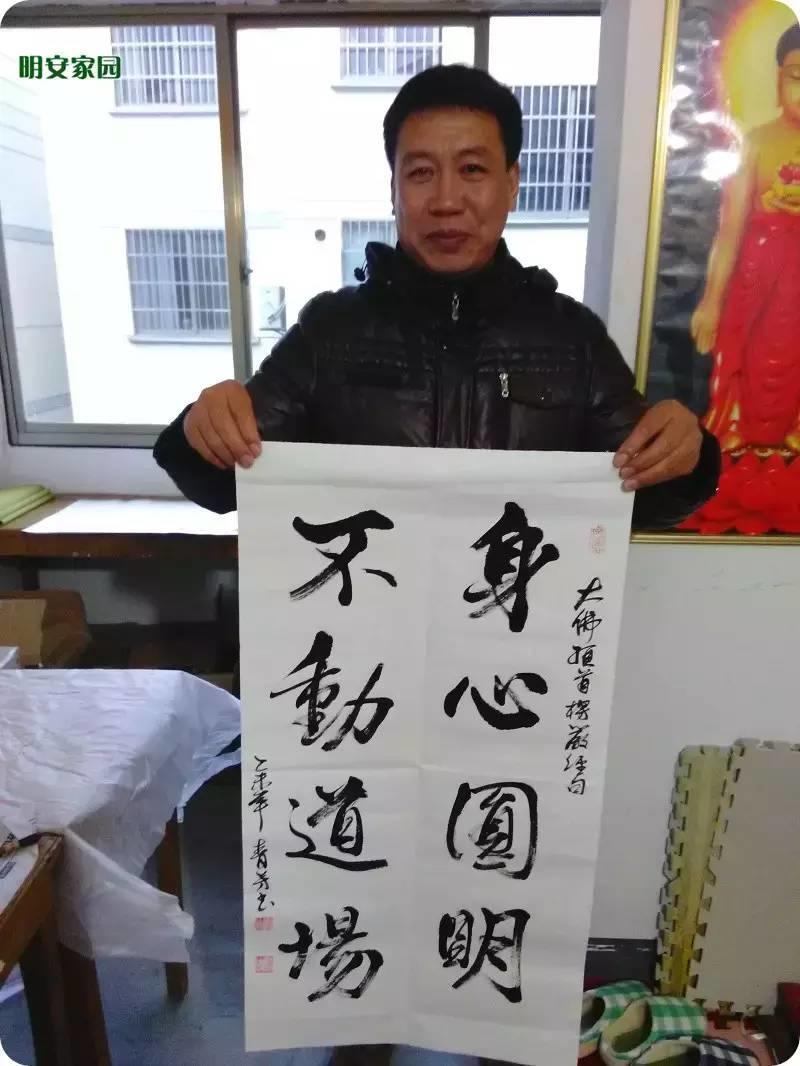 明安家园
大佛顶首楞严经句
身心圓明
不動道場
乙未年 青芳书